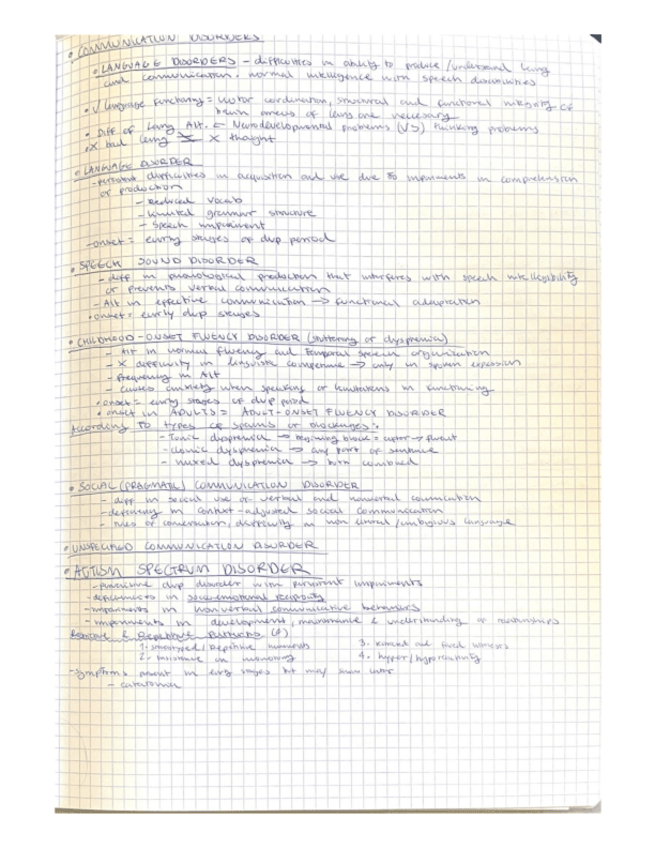 • COMMUNICATION DISORDERS
• LANGUAGE DISORDERS - difficulties in ability to produce/understand lang
and communication. normal intelligence with speech
• √ language functioning = motor coordination, structural and functional integrity of
brain areas of lang are necessary
• Diff of Lang Alt. Neurodevelopmental problems (VS) thinking problems
• X bad lang X thought
• LANGUAGE DISORDER
- persistent difficulties in acquisition and use due to impairments in comprehension
or production
- Reduced vocab
- Limited grammar structure
- Speech impairment
- onset = early stages of dvp period
• SPEECH SOUND DISORDER
- diff in phonological production that interferes with speech intelligibility
or prevents verbal communication
- Alt in effective communication → functional adaptation
• onset = early dvp stages
• CHILDHOOD-ONSET FLUENCY DISORDER (stuttering or dysphemia)
- Alt in normal fluency and temporal speech organization
- X difficulty in linguistic competence → only in spoken expression
- frequency in Alt
- causes anxiety when speaking or limitations in functioning
• onset = early stages of dvp period
• onset in ADULTS = ADULT-ONSET FLUENCY DISORDER
According to types of spasms or blockages:
- Tonic dysphemia → beginning block = → fluent
- clonic dysphemia → any part of sentence
- mixed dysphemia → both combined
• SOCIAL (PRAGMATIC) COMMUNICATION DISORDER
- diff in social use of verbal and nonverbal communication
- deficiency in context-adjusted social communication
- rules of conversation, difficulty in non literal/ambigious language
• UNSPECIFIED COMMUNICATION DISORDER
• AUTISM SPECTRUM DISORDER
- pervasive dvp disorder with persistent impairments
- deficiencies in socio-emotional reciprocity
- impairments in nonverbal communicative behaviors
- impairments in development, maintenance & understanding of relationships
Restrictive & Repetitive patterns
1. stereotyped/repetitive movements
3. and fixed interests
2. on monotony
4. hyper/hyporeactivity
- symptoms present in early stages but may later
- catatonia